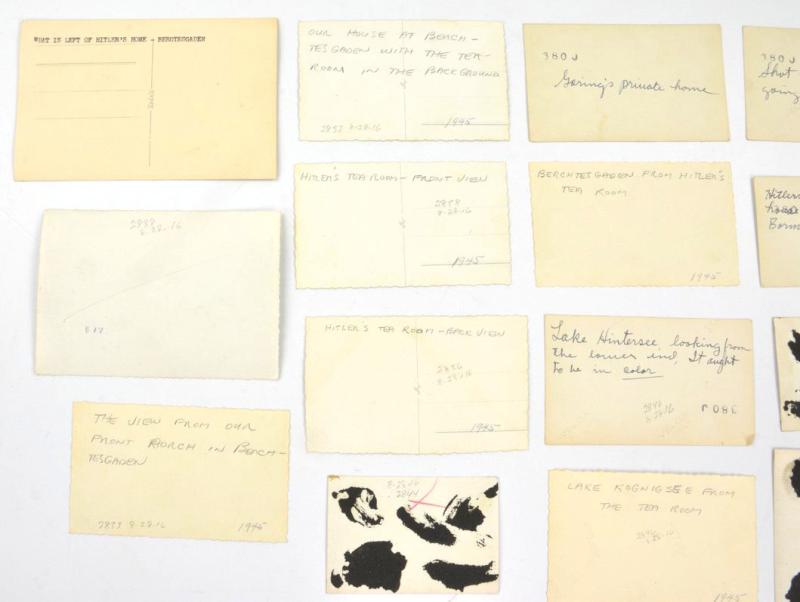 WHAT IS LEFT OF HITLER'S HOME - BERCTESGADEN
OUR HOUSE AT BEACH-
TESGADEN WITH THE TEA-
ROOM IN THE BACKGROUND
1945
2893 8-28-16
380J
Goring's private home
380J
Shot
going
2888
8.28.16
E17
HITLER'S TEA ROOM - FRONT VIEW
2898
8-28-16
1945
BERCHTESGADEN FROM HITLER'S
TEA ROOM
1945
Hitlers
house
Borm
HITLER'S TEA ROOM - BACK VIEW
2886
8-28-16
1945
Lake Hintersee, looking from
the lower end. It aught
to be in color
2848
8-28-16
380J
THE VIEW FROM OUR
FRONT PORCH IN BEACH-
TESGADEN
2893 8-28-16
1945
8-28-16
2844
LAKE KOGNIGSEE FROM
THE TEA ROOM
1945